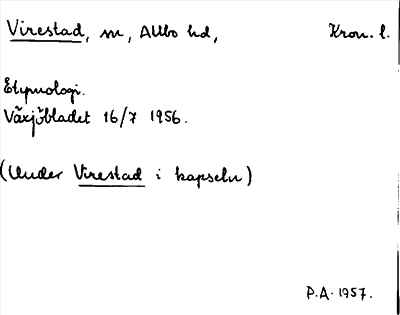 Virestad, m, Allbo hd, Kron. l.
Etymologi.
Växjöbladet 16/7 1956.
(Under Virestad i kapseln)
P.A. 1957.